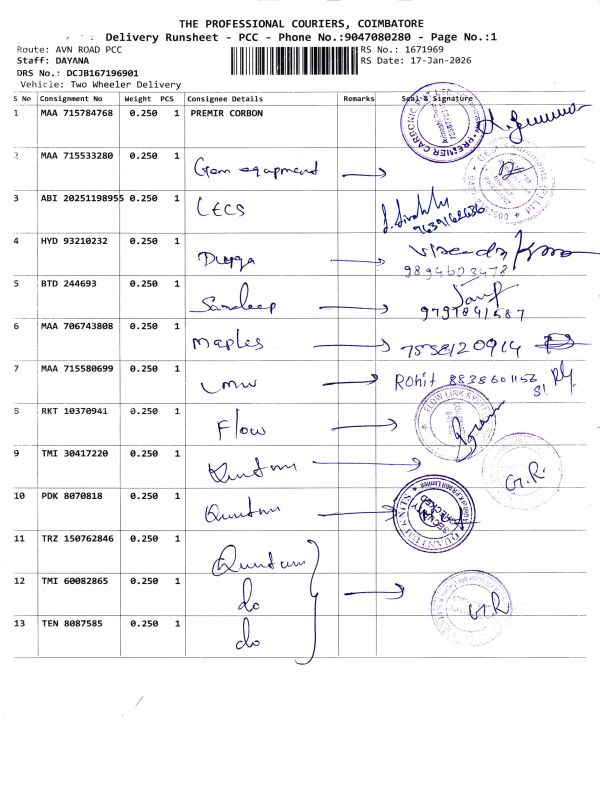 THE PROFESSIONAL COURIERS, COIMBATORE
Delivery Runsheet - PCC - Phone No.:9047080280 - Page No.:1
Route: AVN ROAD PCC
RS No.: 1671969
Staff: DAYANA
RS Date: 17-Jan-2026
DRS No.: DCJB167196901
Vehicle: Two Wheeler Delivery
S No Consignment No Weight PCS Consignee Details Remarks Seal & Signature
1 MAA 715784768 0.250 1 PREMIR CORBON
PREMIER CARBONIC
2 MAA 715533280 0.250 1 Gem equipment
3 ABI 20251198955 0.250 1 LECS
4 HYD 93210232 0.250 1 Durga
9894603478
5 BTD 244693 0.250 1 Sandeep
9797841587
6 MAA 706743808 0.250 1 maples 7558120914
7 MAA 715580699 0.250 1 LMW Rohit 8838601156
8 RKT 10370941 0.250 1 Flow
FLOW LINK
9 TMI 30417220 0.250 1 Quntum
G.R.
10 PDK 8070818 0.250 1 Quntum
SECURITY CHECKED
11 TRZ 150762846 0.250 1 Quntum
12 TMI 60082865 0.250 1 do
G.R
13 TEN 8087585 0.250 1 do